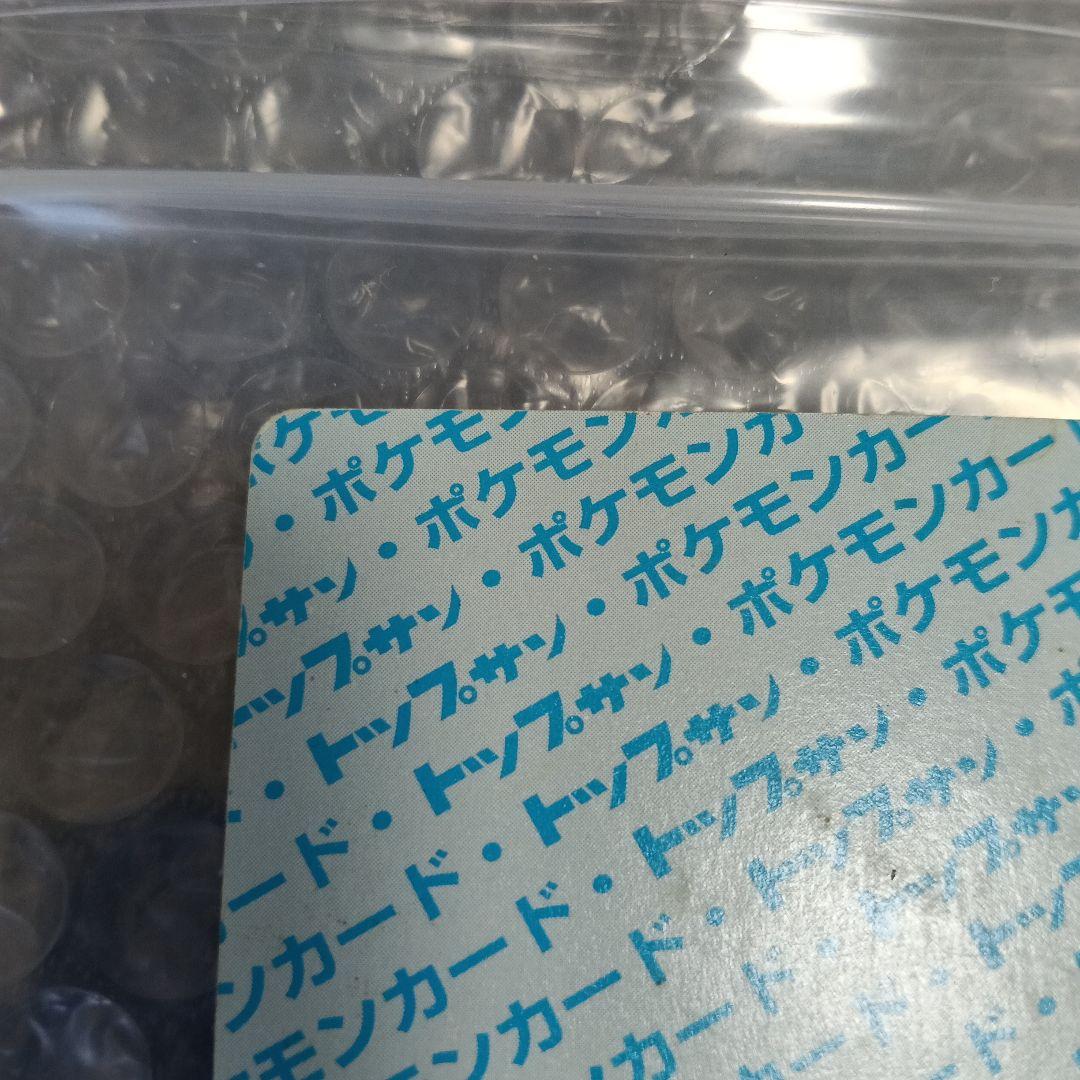 ポケモ
・ポケモン
プサン・ポケモン
トップサン・ポケモンカ
・トップサン・ポケモンカー
ード・トップサン・ポケモンカー
ンカード・トップサン・ポケモンカ
モンカード・トップサン・ポケモ
ンカード・トップサン・ポ
カード・トップサン
ード・トップ
ド・